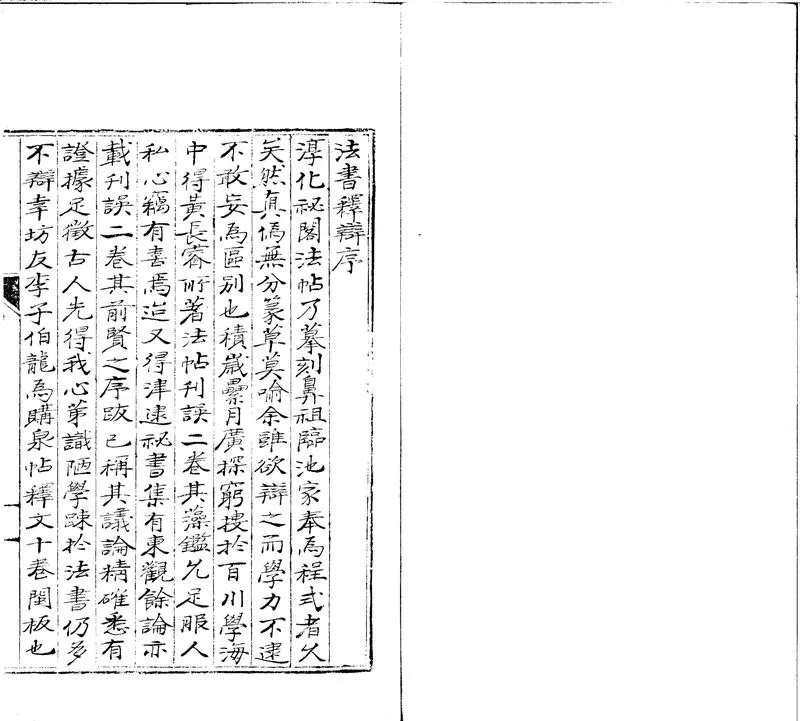 法書釋辯序
淳化祕閣法帖乃摹刻鼻祖臨池家奉為程式者久
矣然真偽無分篆草莫喻余雖欲辯之而學力不逮
不敢妄為區别也積歲纍月廣探窮搜於百川學海
中得黃長睿所著法帖刊誤二卷其藻鑑允足服人
私心竊有喜焉迨又得津逮祕書集有東觀餘論亦
載刊誤二卷其前賢之序跋已稱其議論精確悉有
證據足徵古人先得我心第識陋學踈於法書仍多
不辯幸坊友李子伯龍為購泉帖釋文十卷閩板也